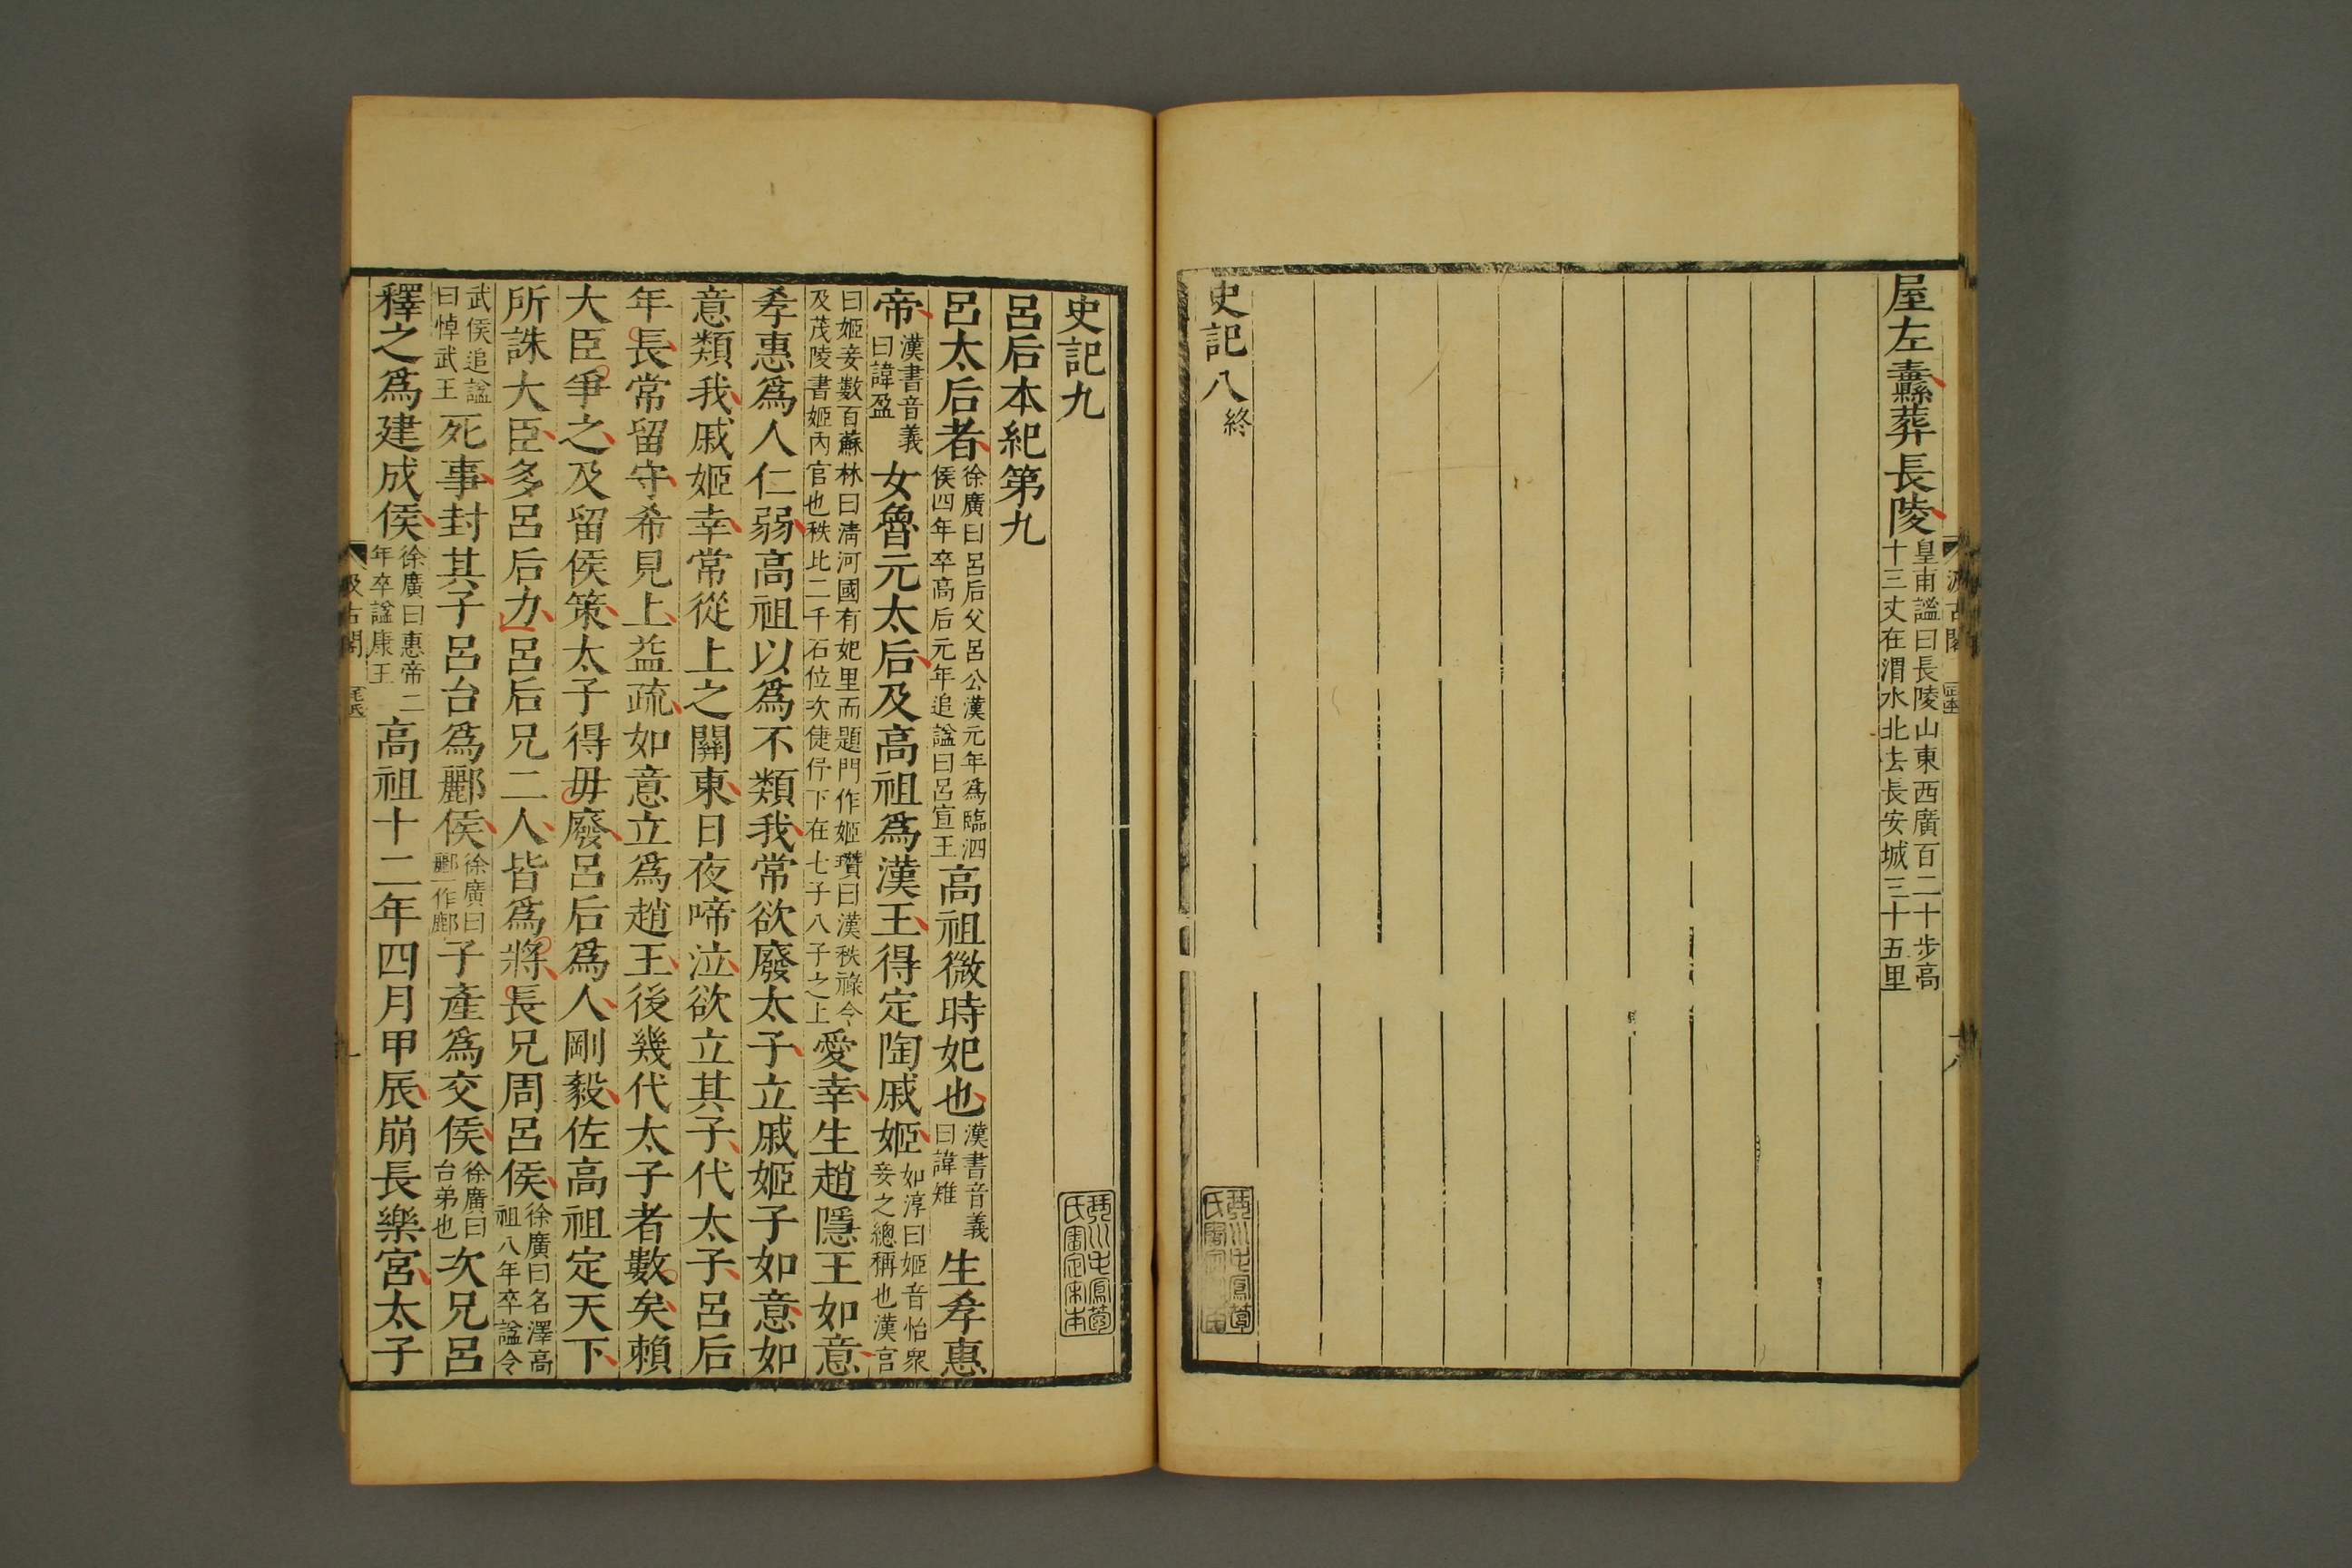 屋左纛葬長陵皇甫謐曰長陵山東西廣百二十步高十三丈在渭水北去長安城三十五里
史記八終
史記九
呂后本紀第九
呂太后者徐廣曰呂后父呂公漢元年爲臨泗侯四年卒高后元年追謚曰呂宣王高祖微時妃也漢書音義曰諱雉生孝惠
帝漢書音義曰諱盈女魯元太后及高祖爲漢王得定陶戚姬如淳曰姬音怡衆妾之總稱也漢官
曰姬妾數百蘇林曰淸河國有妃里而題門作姬瓚曰漢秩祿令及茂陵書姬內官也秩比二千石位次倢伃下在七子八子之上愛幸生趙隱王如意
孝惠爲人仁弱高祖以爲不類我常欲廢太子立戚姬子如意如
意類我戚姬幸常從上之關東日夜啼泣欲立其子代太子呂后
年長常留守希見上益疏如意立爲趙王後幾代太子者數矣賴
大臣爭之及留侯策太子得毋廢呂后爲人剛毅佐高祖定天下
所誅大臣多呂后力呂后兄二人皆爲將長兄周呂侯徐廣曰名澤高祖八年卒謚令
武侯追謚曰悼武王死事封其子呂台爲酈侯徐廣曰酈一作鄜子產爲交侯徐廣曰台弟也次兄呂
釋之爲建成侯徐廣曰惠帝二年卒謚康王高祖十二年四月甲辰崩長樂宮太子
汲古閣